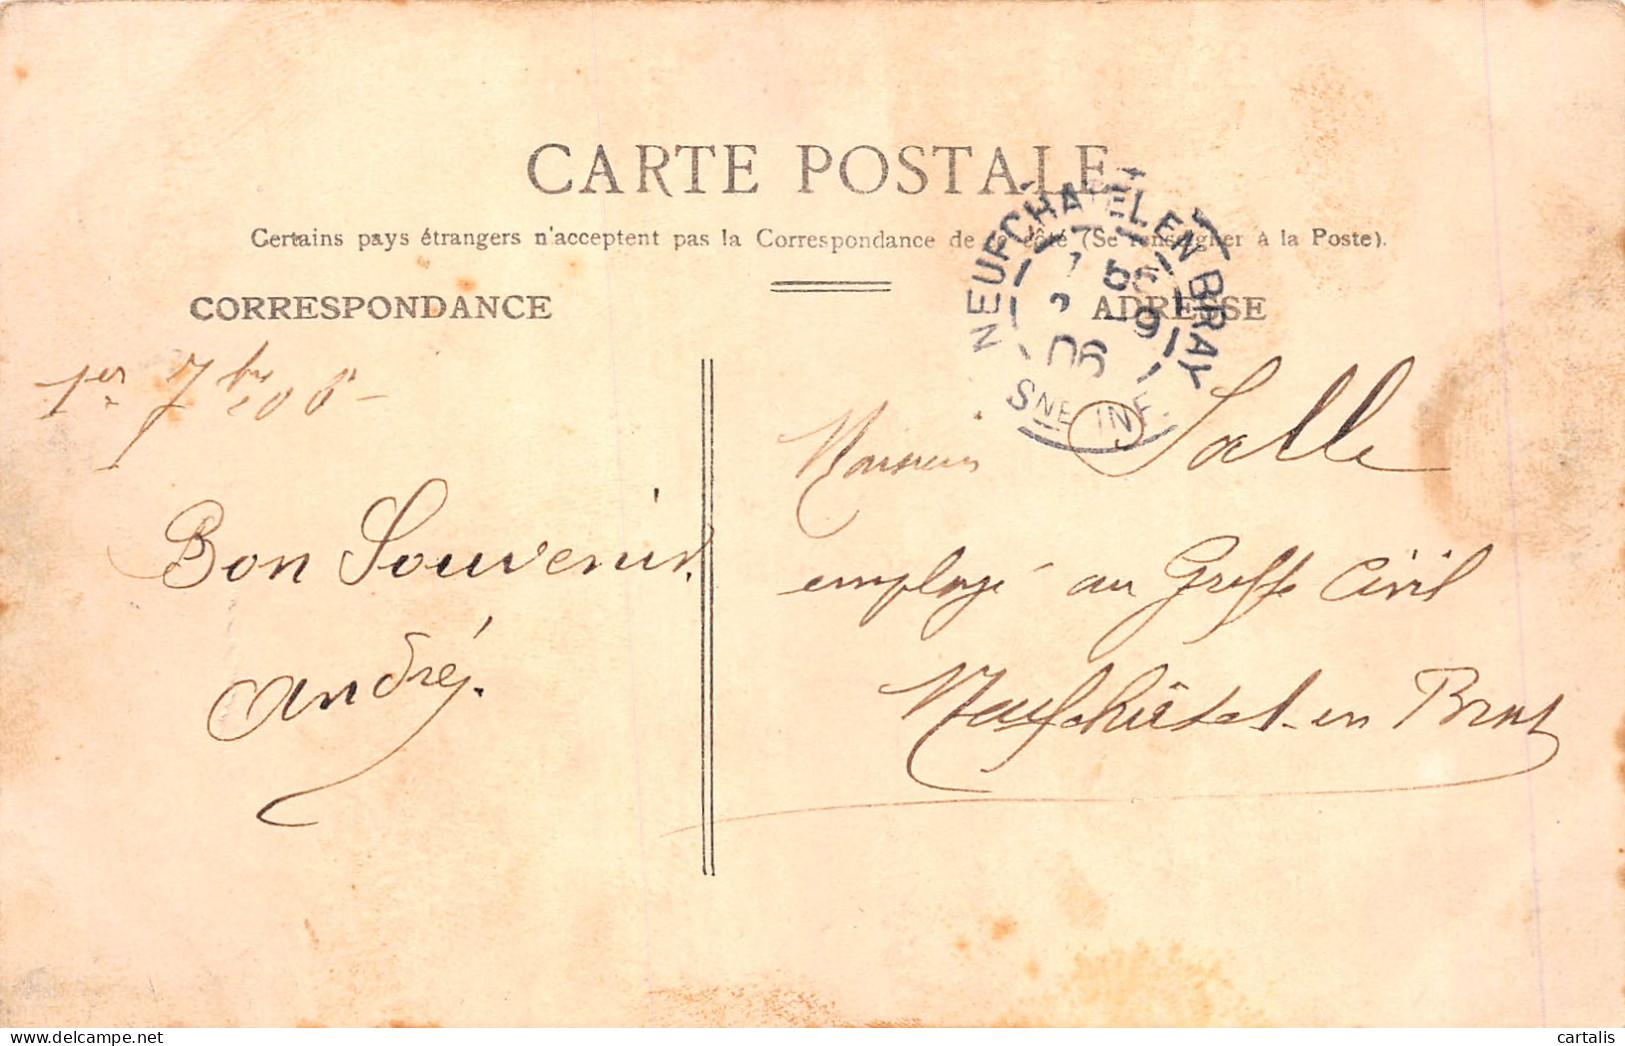 CARTE POSTALE
Certains pays étrangers n'acceptent pas la Correspondance de ce côté (Se renseigner à la Poste).
CORRESPONDANCE
ADRESSE
NEUFCHATEL EN BRAY
06
SNE INF.
1er 7bre 06 -
Bon Souvenir.
André.
Monsieur Salle
employé au Greffe Civil
Neufchâtel-en Bray
cartalis